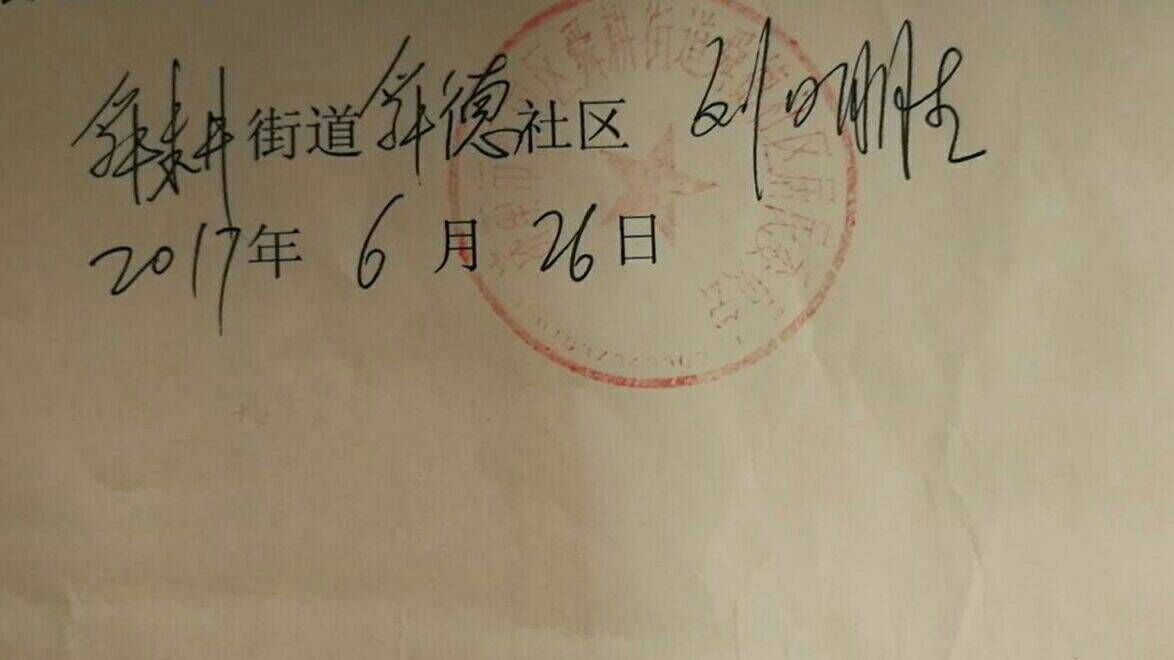 舜耕街道舜德社区 刘明胜
2017年 6月 26日
区舜耕街道舜德社区居民委员会